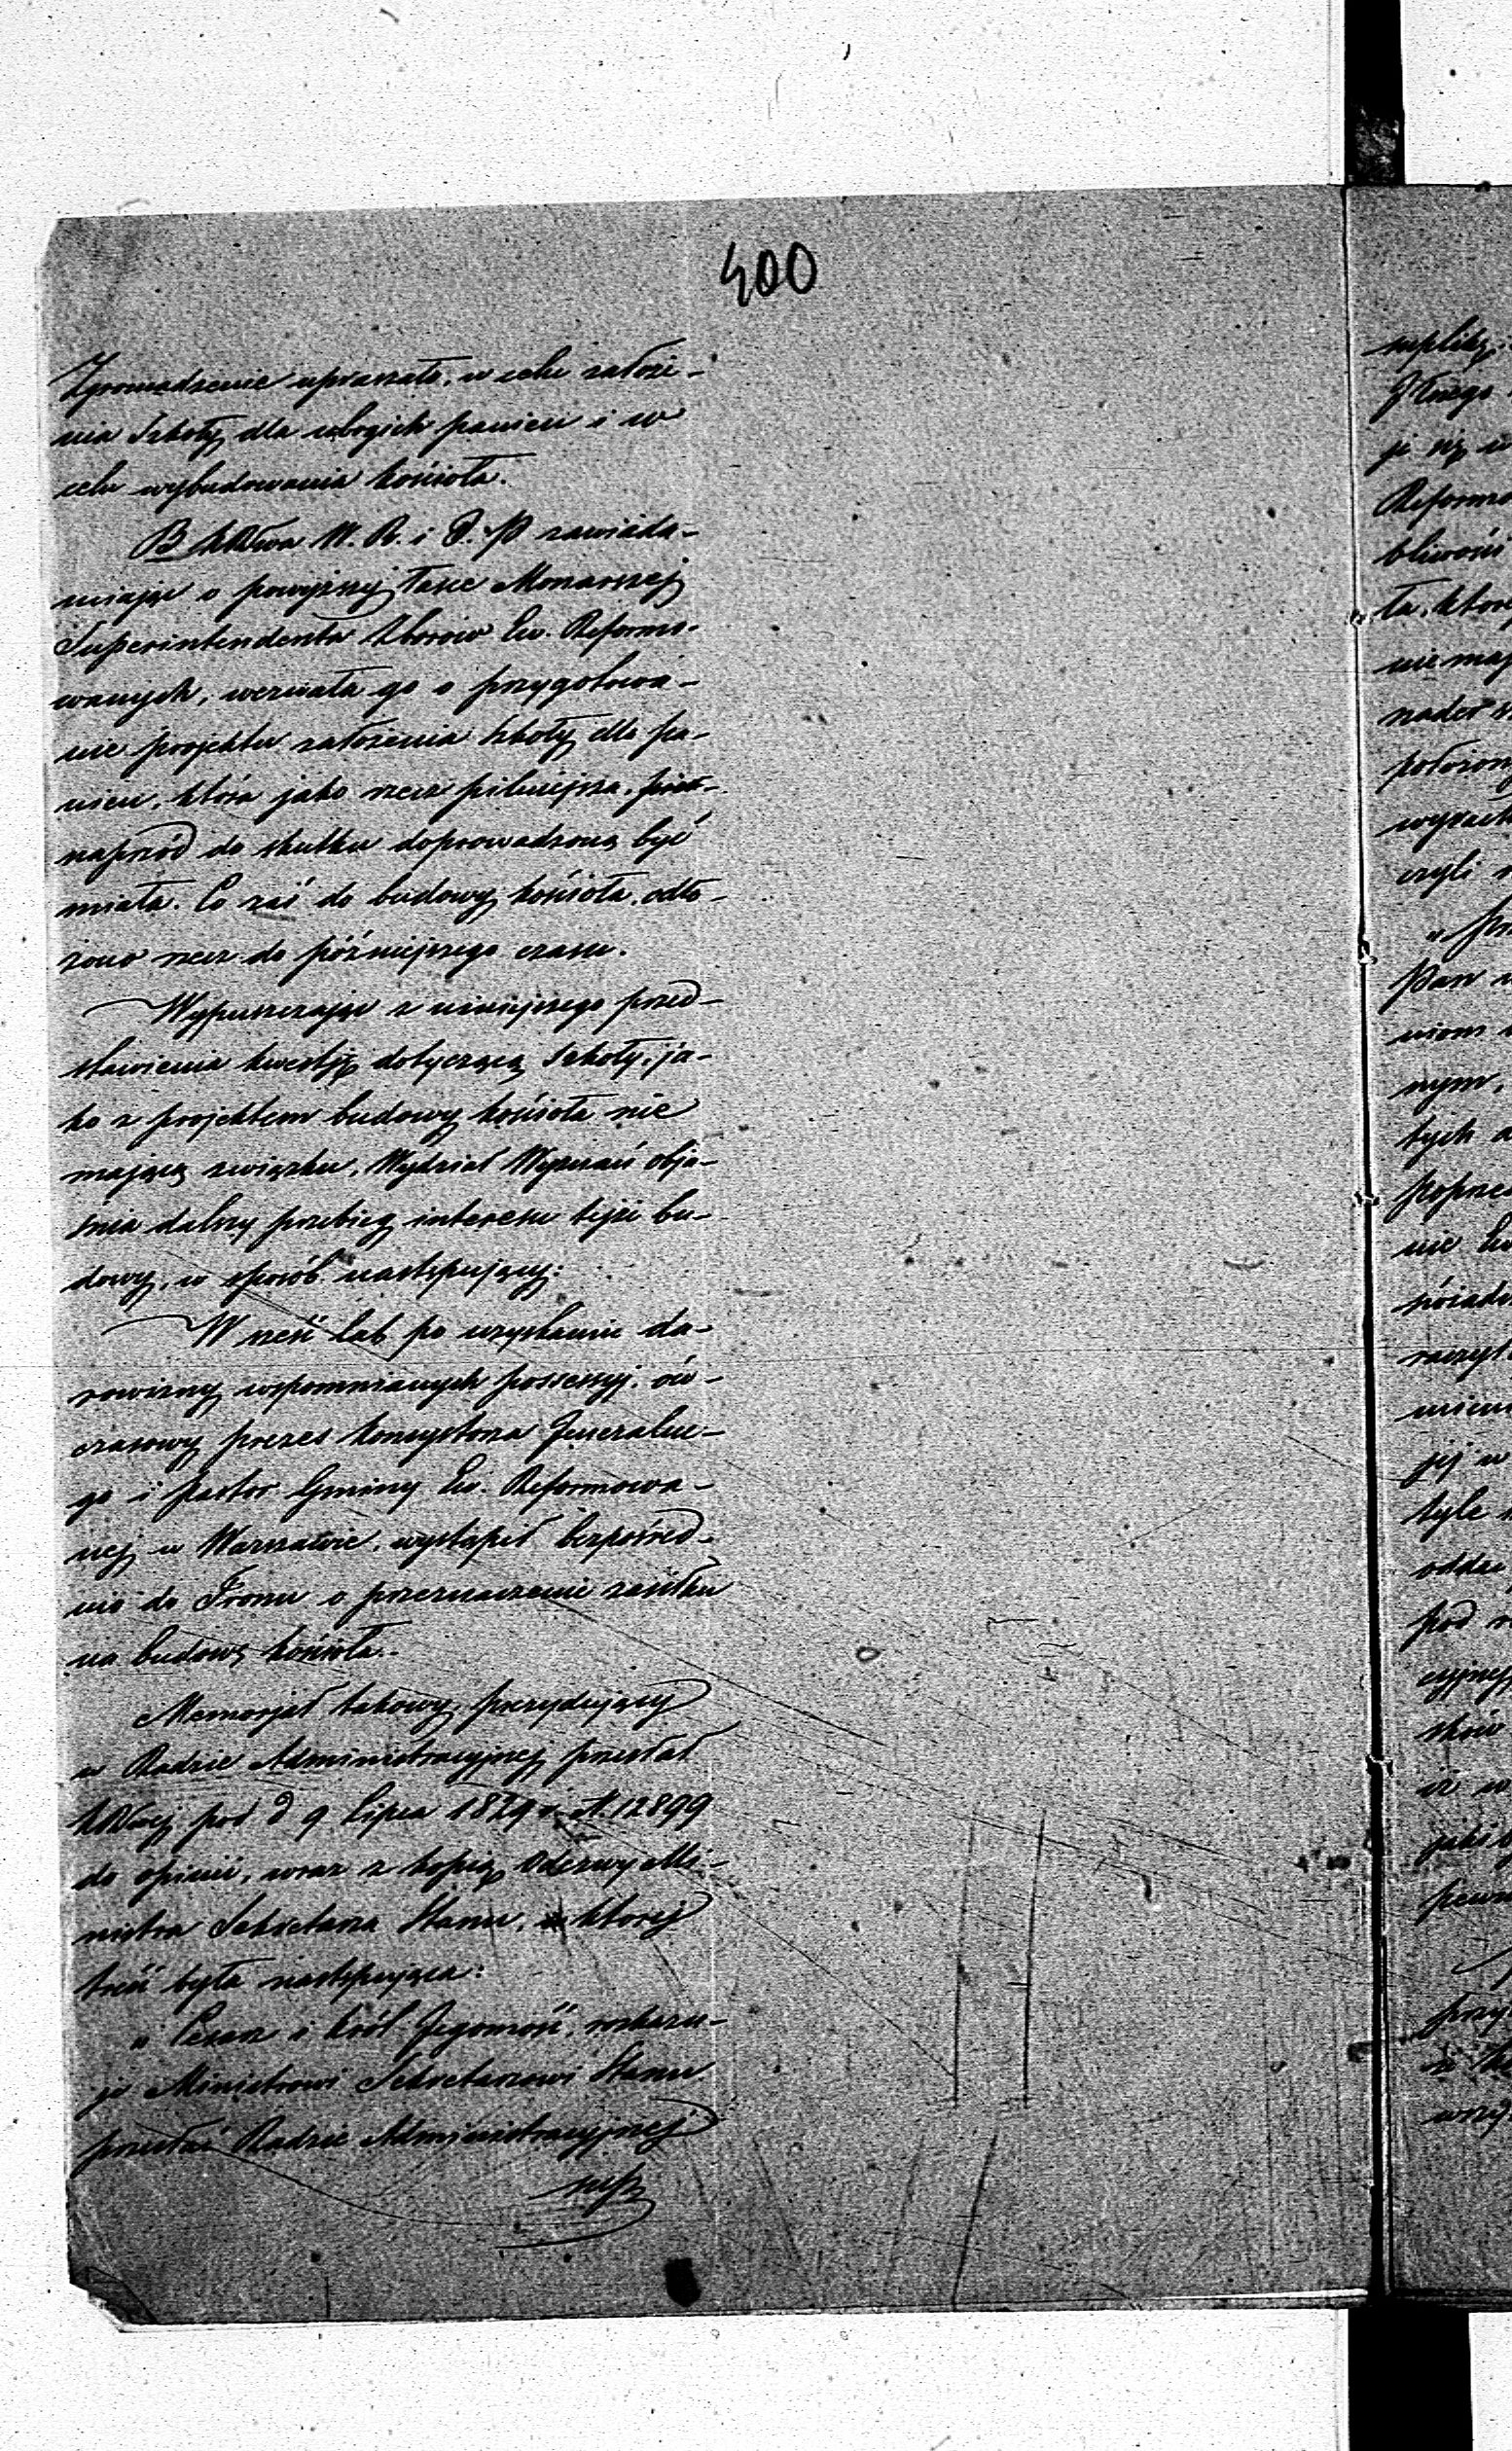 400
Zgromadzenie upraszało, w celu założe-
nia Szkoły dla ubogich panien i w
celu wybudowania kościoła.
B. KRSwa W. R. i O. P. zawiada-
miając o powyższej łasce Monarszej
Superintendenta Zborów Ew. Reformo-
wanych, wezwała go o przygotowa-
nie projektu założenia Szkoły dla pa-
nien, która jako rzecz pilniejsza,
naprzód do skutku doprowadzoną być
miała. Co zaś do budowy kościoła, odło-
żono rzecz do późniejszego czasu.
Wypuszczając z niniejszego przed-
stawienia kwestyę dotyczącą Szkoły, ja-
ko z projektem budowy kościoła nie
mającą związku, Wydział Wyznań obja-
śnia dalszy przebieg interesu tejże bu-
dowy, w sposób następujący:
W sześć lat po uzyskaniu da-
rowizny wspomnianych possessyj, ów-
czasowy prezes Konsystorza Jeneralne-
go i pastor Gminy Ew. Reformowa-
nej w Warszawie, wystąpił bezpośred-
nio do Tronu o przeznaczenie zasiłku
na budowę kościoła.
Memorjał takowy, prezydujący
w Radzie Administracyjnej przesłał
pod d 9 Lipca 1829 r. N. 12899
do opinii, wraz z kopią Odezwy Mi-
nistra Sekretarza Stanu, której
treść była następująca:
„Cesarz i Król Jegomość, rozkazu-
je Ministrowi Sekretarzowi Stanu
przesłać Radzie Administracyjnej
supl
suplikę
ji się w
Reformo
bliwości
ła, któr
nie maj
położon
czyli
Pan
niom
nym,
tych
poprze
nie Ew
jej w
tyle
pod
cyjnej
iż w